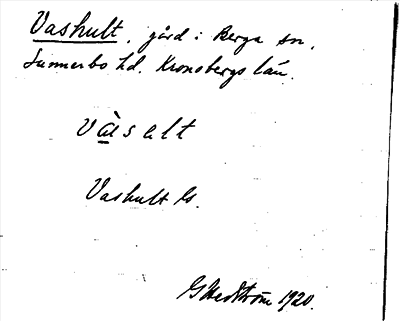 Vashult, gård i Berga sn,
Sunnerbo hd. Kronobergs län.
và̱sält
Vashult Gs.
G Hedström 1920.